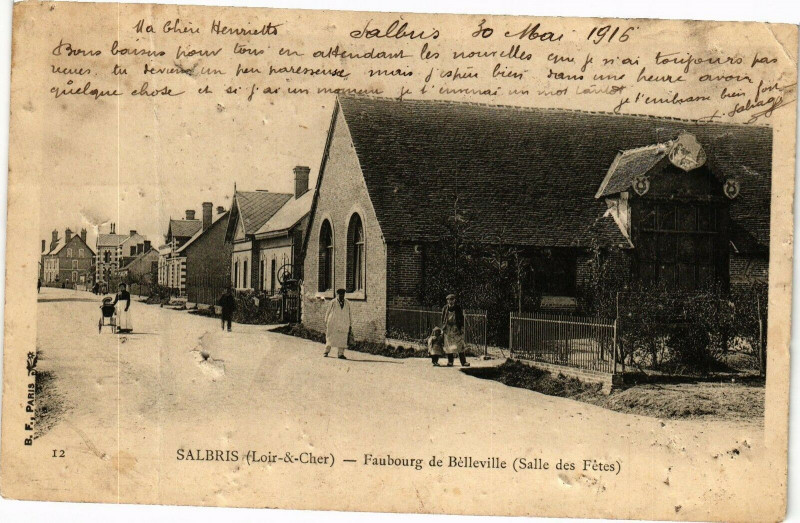 Ma Chère Henriette Salbris 30 Mai 1916
Bons baisers pour tous en attendant les nouvelles que je n'ai toujours pas
reçues, tu deviens un peu paresseuse mais j'espère bien dans une heure avoir
quelque chose et si j'ai un moment je t'enverrai un mot
je t'embrasse bien fort
B. F., PARIS
12
SALBRIS (Loir-&-Cher) — Faubourg de Bèlleville (Salle des Fêtes)